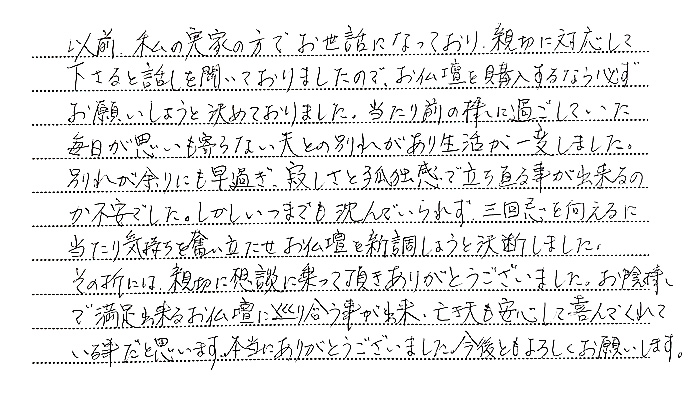 以前、私の実家の方でお世話になっており、親切に対応して
下さると話しを聞いておりましたので、お仏壇を購入するなら必ず
お願いしようと決めておりました。当たり前の様に過ごしていた
毎日が思いも寄らない夫との別れがあり生活が一変しました。
別れが余りにも早過ぎ、寂しさと孤独感で立ち直る事が出来るの
か不安でした。しかしいつまでも沈んでいられず、三回忌を向えるに
当たり気持ちを奮い立たせお仏壇を新調しようと決断しました。
その折には、親切に想談に乗って頂きありがとうございました。お陰様
で満足出来るお仏壇に巡り合う事が出来、亡き夫も安心して喜んでくれて
いる事だと思います。本当にありがとうございました。今後ともよろしくお願いします。